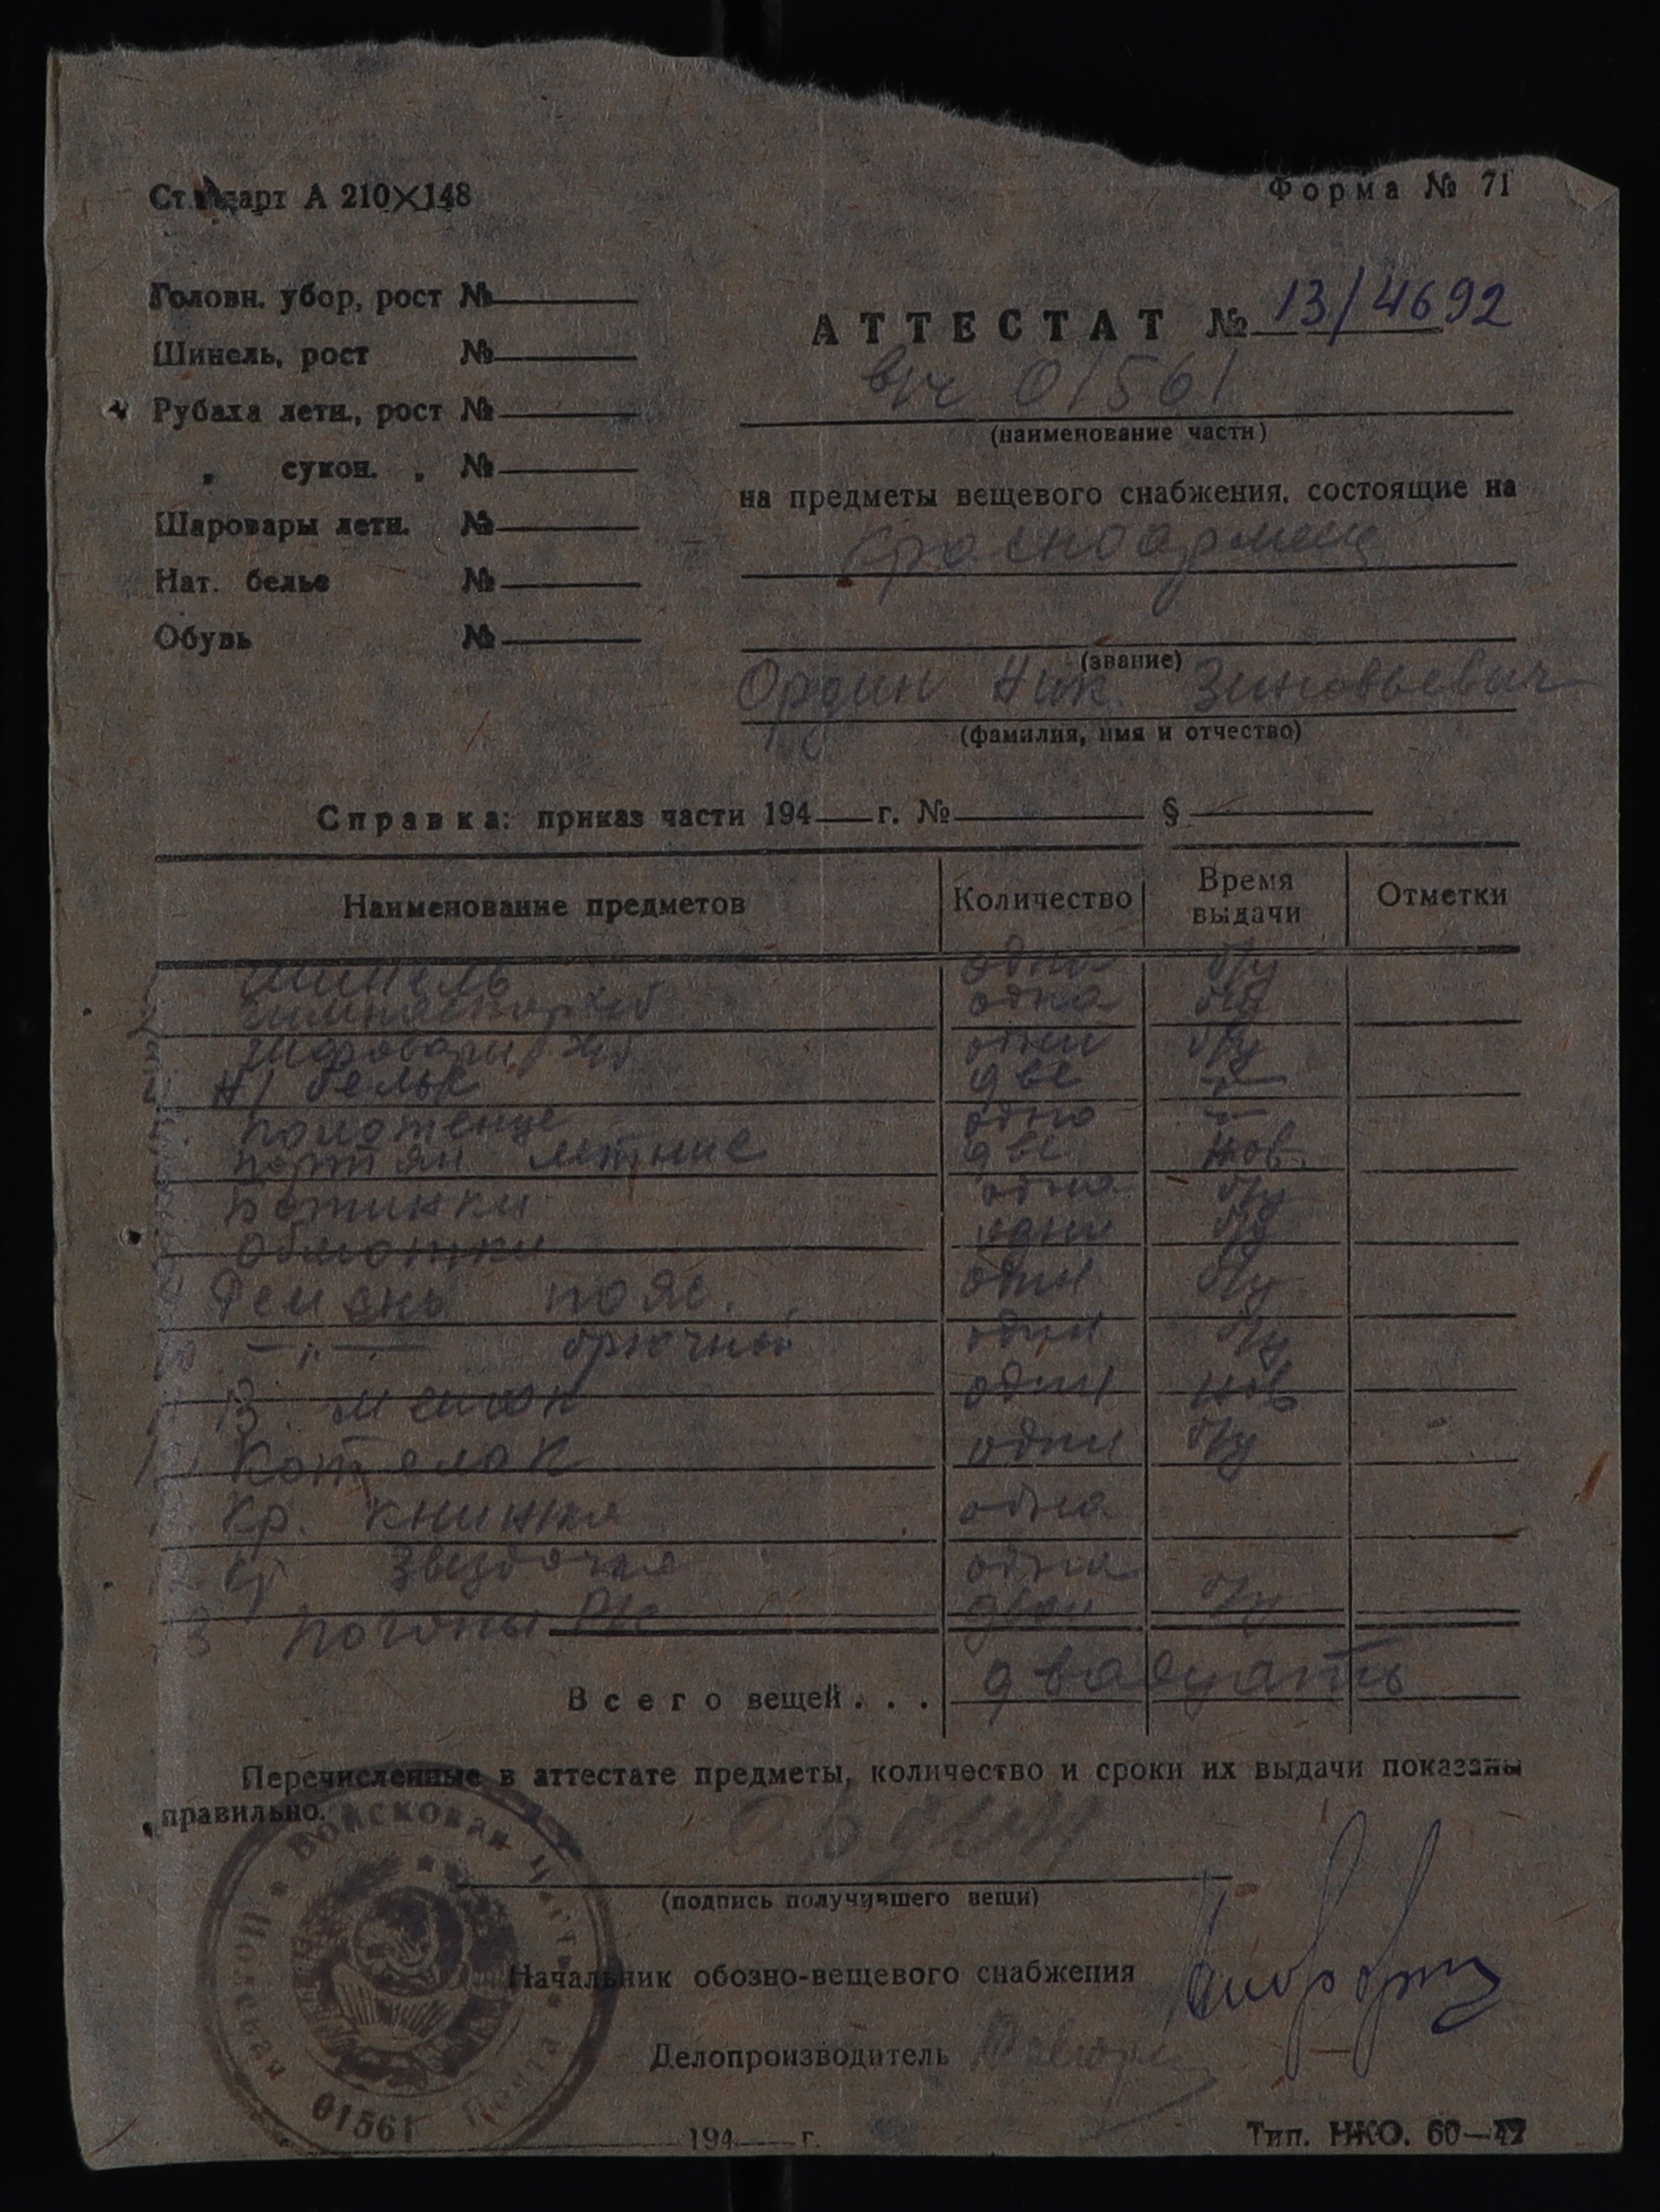 Стандарт А 210×148
Форма № 71
Головн. убор, рост №
Шинель, рост №
Рубаха летн., рост №
„ сукон. „ №
Шаровары летн. №
Нат. белье №
Обувь №
АТТЕСТАТ № 13/4692
в/ч 01561
(наименование части)
на предметы вещевого снабжения, состоящие на
Красноармеец
(звание)
Ордин Ник. Зиновьевич
(фамилия, имя и отчество)
Справка: приказ части 194 г. № §
Наименование предметов Количество Время выдачи Отметки
1 Шинель одна б/у
2 гимнастер х/б одна б/у
3 шаровары х/б одни б/у
4 Н/ белье две -"-
5. полотенце одно -"-
портян летние две нов.
Ботинки одна б/у
обмотки одни б/у
Ремень пояс. один б/у
10 -"- брючной один б/у
В. мешок один нов
Котелок один б/у
Кр. книжка одна
Кр звездочка одна
погоны двои б/у
Всего вещей . . . двадцать
Перечисленные в аттестате предметы, количество и сроки их выдачи показаны
правильно.
Ордин
(подпись получившего вещи)
Начальник обозно-вещевого снабжения
Делопроизводитель
194 г.
Тип. НКО. 60—42
Войсковая Часть
Полевая Почта
01561